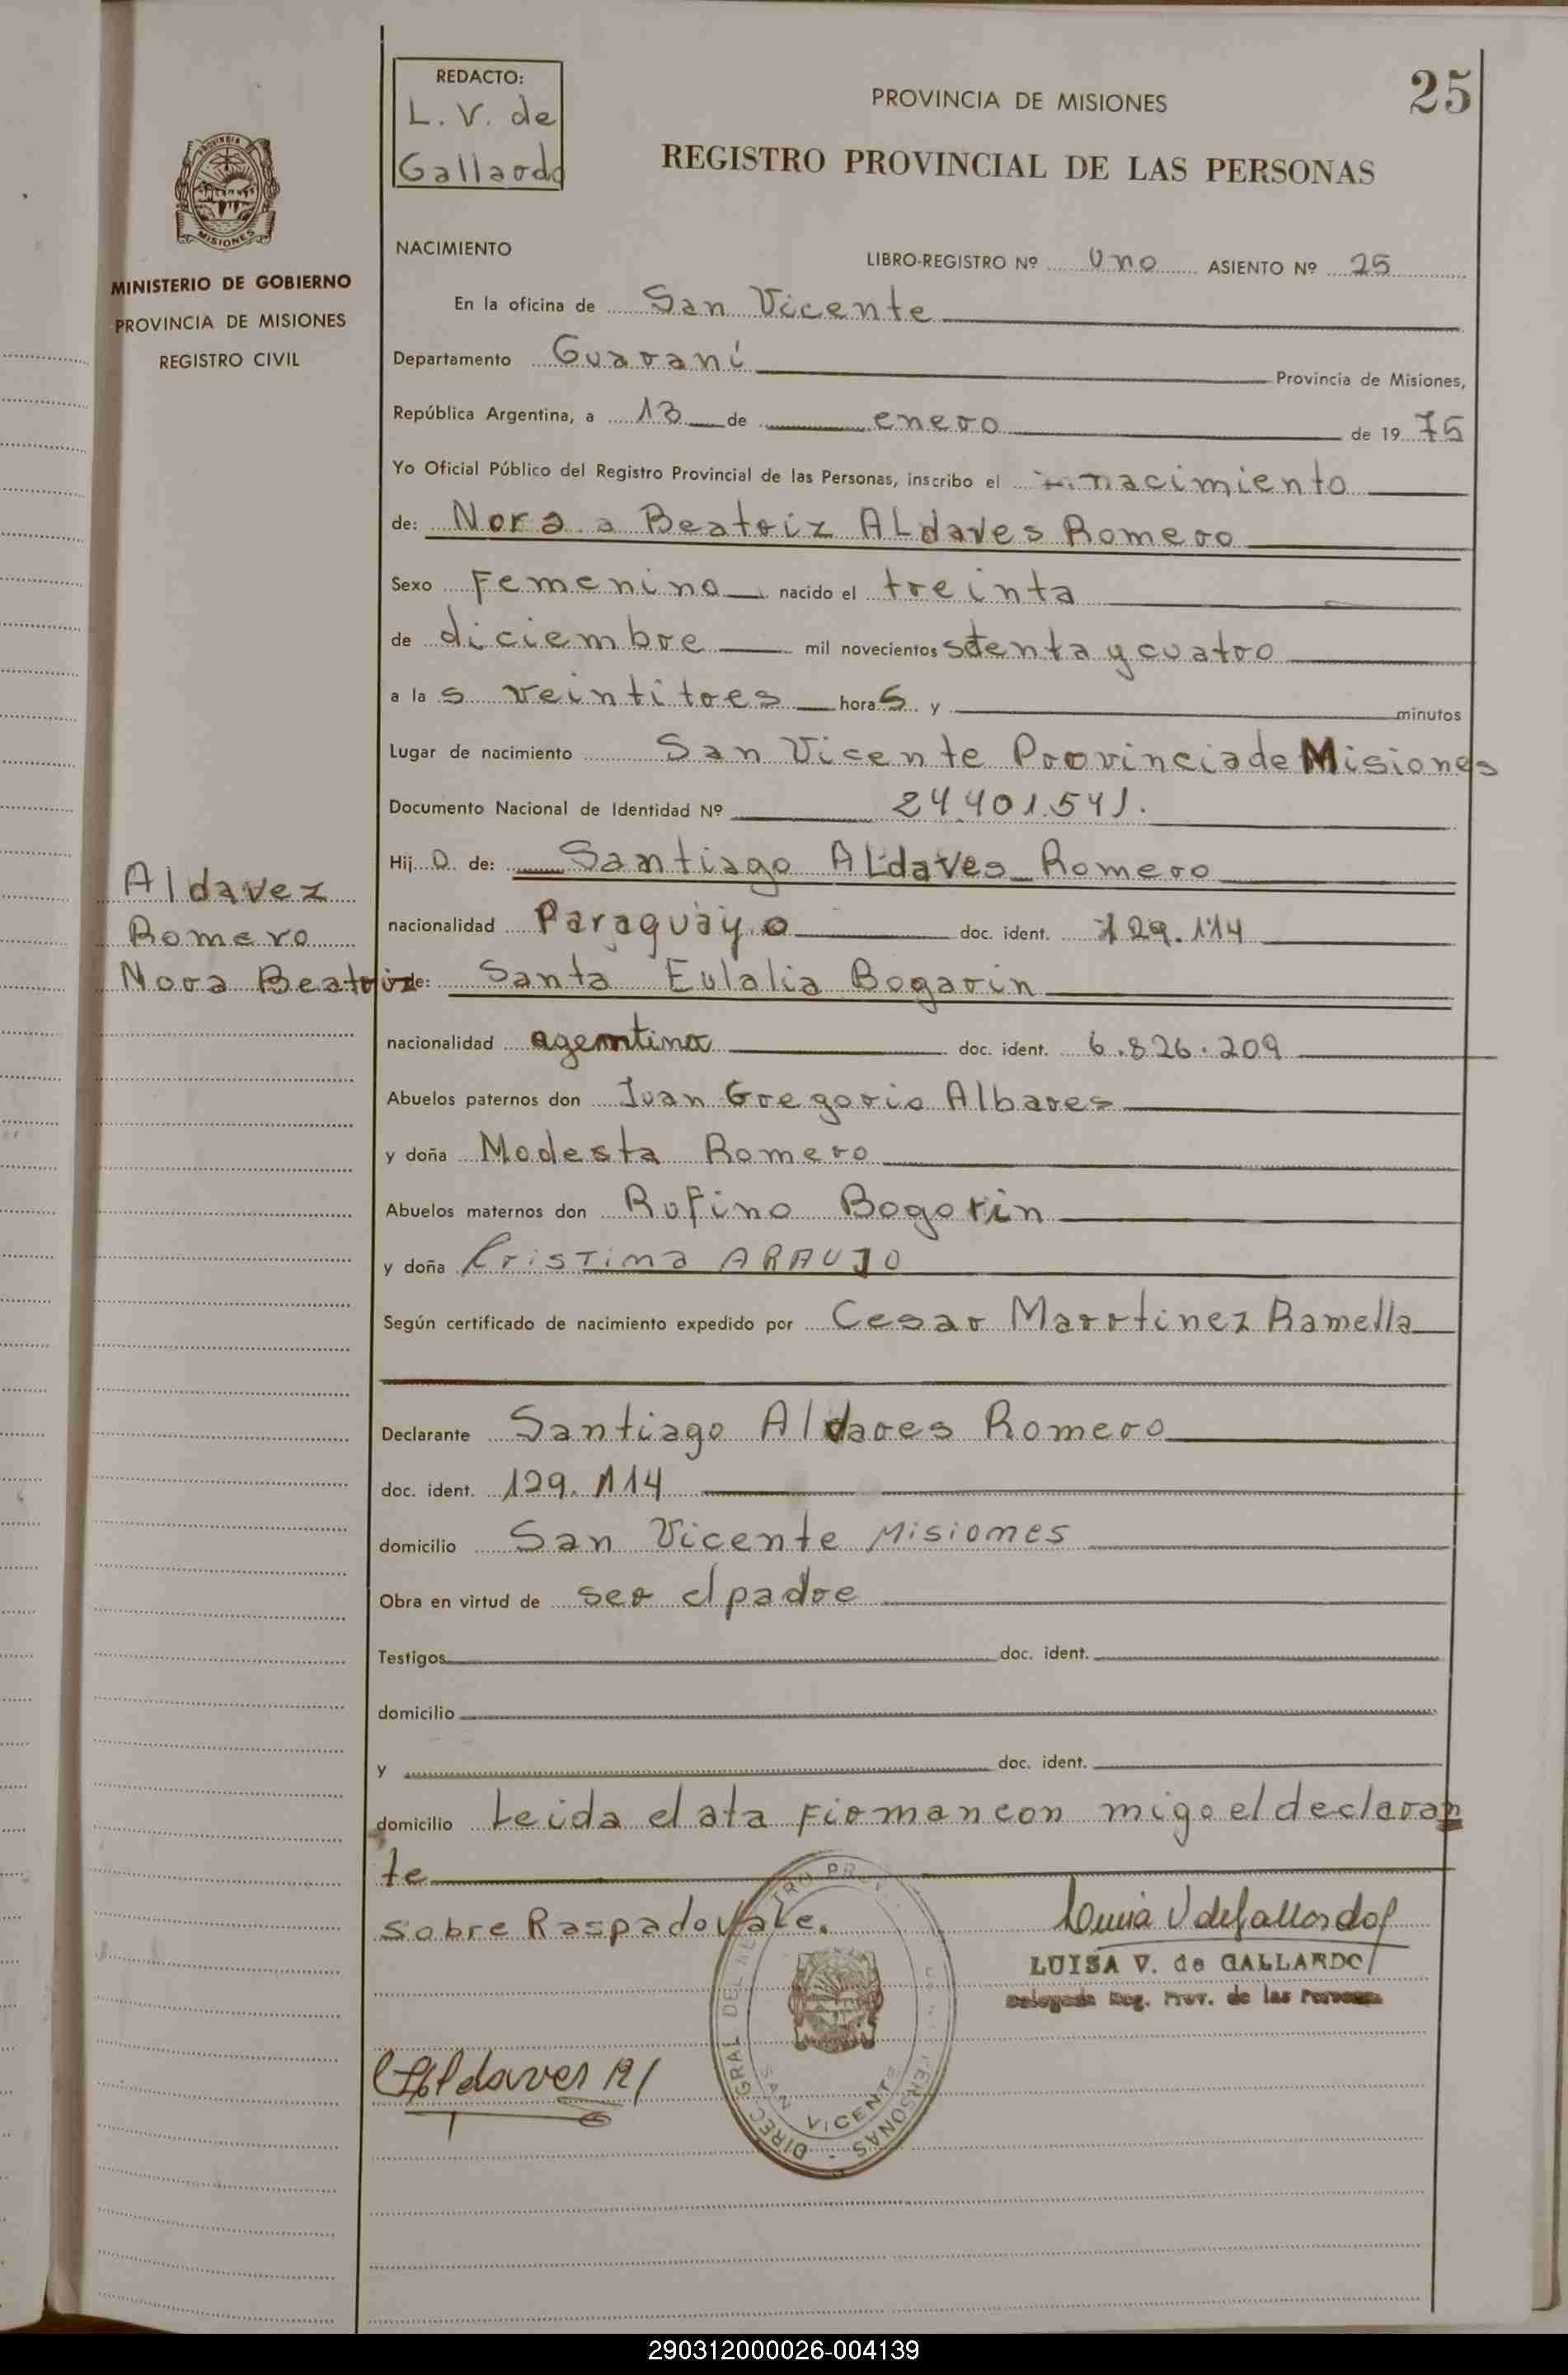 25
REDACTO:
L. V. de
Gallardo
PROVINCIA DE MISIONES
REGISTRO PROVINCIAL DE LAS PERSONAS
PROVINCIA DE
MISIONES
MINISTERIO DE GOBIERNO
PROVINCIA DE MISIONES
REGISTRO CIVIL
NACIMIENTO
LIBRO-REGISTRO Nº Uno ASIENTO Nº 25
En la oficina de San Vicente
Departamento Guaraní Provincia de Misiones,
República Argentina, a 13 de enero de 1975
Yo Oficial Público del Registro Provincial de las Personas, inscribo el nacimiento
de: Nora a Beatriz ALdaves Romero
Sexo Femenino nacido el treinta
de diciembre mil novecientos setenta y cuatro
a las veintitres horas y minutos
Lugar de nacimiento San Vicente Provincia de Misiones
Documento Nacional de Identidad Nº 24.401.541.
Hij a de: Santiago ALdaves Romero
nacionalidad Paraguayo doc. ident. 129.114
Aldavez
Romero
Nora Beatriz
de: Santa Eulalia Bogarin
nacionalidad agentina doc. ident. 6.826.209
Abuelos paternos don Juan Gregorio Albares
y doña Modesta Romero
Abuelos maternos don Rufino Bogorin
y doña Cristina ARAUJO
Según certificado de nacimiento expedido por Cesar Marrtinez Ramella
Declarante Santiago Aldares Romero
doc. ident. 129.114
domicilio San Vicente Misiones
Obra en virtud de ser el padre
Testigos doc. ident.
domicilio
y doc. ident.
domicilio Leida el ata firman con migo el declaran
te
Sobre Raspado Vale.
Luisa V de Gallardo
LUISA V. de GALLARDO
Delegada Reg. Prov. de las Personas
DIREC. GRAL DEL REGISTRO PROV. DE LAS PERSONAS
SAN VICENTE
Aldaves R
290312000026-004139